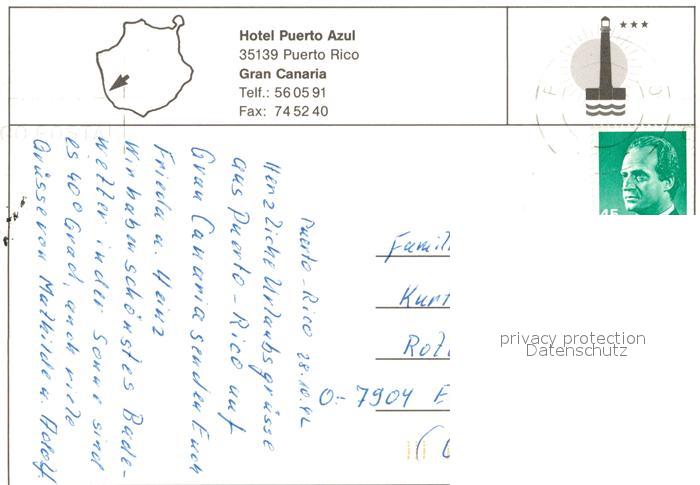 Hotel Puerto Azul
35139 Puerto Rico
Gran Canaria
Telf.: 56 05 91
Fax: 74 52 40
45
Puerto-Rico 28.10.92
Herzliche Urlaubsgrüsse
aus Puerto-Rico auf
Gran Canaria senden Euch
Frieda u. Heinz
Wir haben schönstes Bade-
wetter in der Sonne sind
es 40 Grad, auch viele
Grüsse von Mathilde u. Adolf.
Famil
Kurt
O-7904 E
privacy protection
Datenschutz